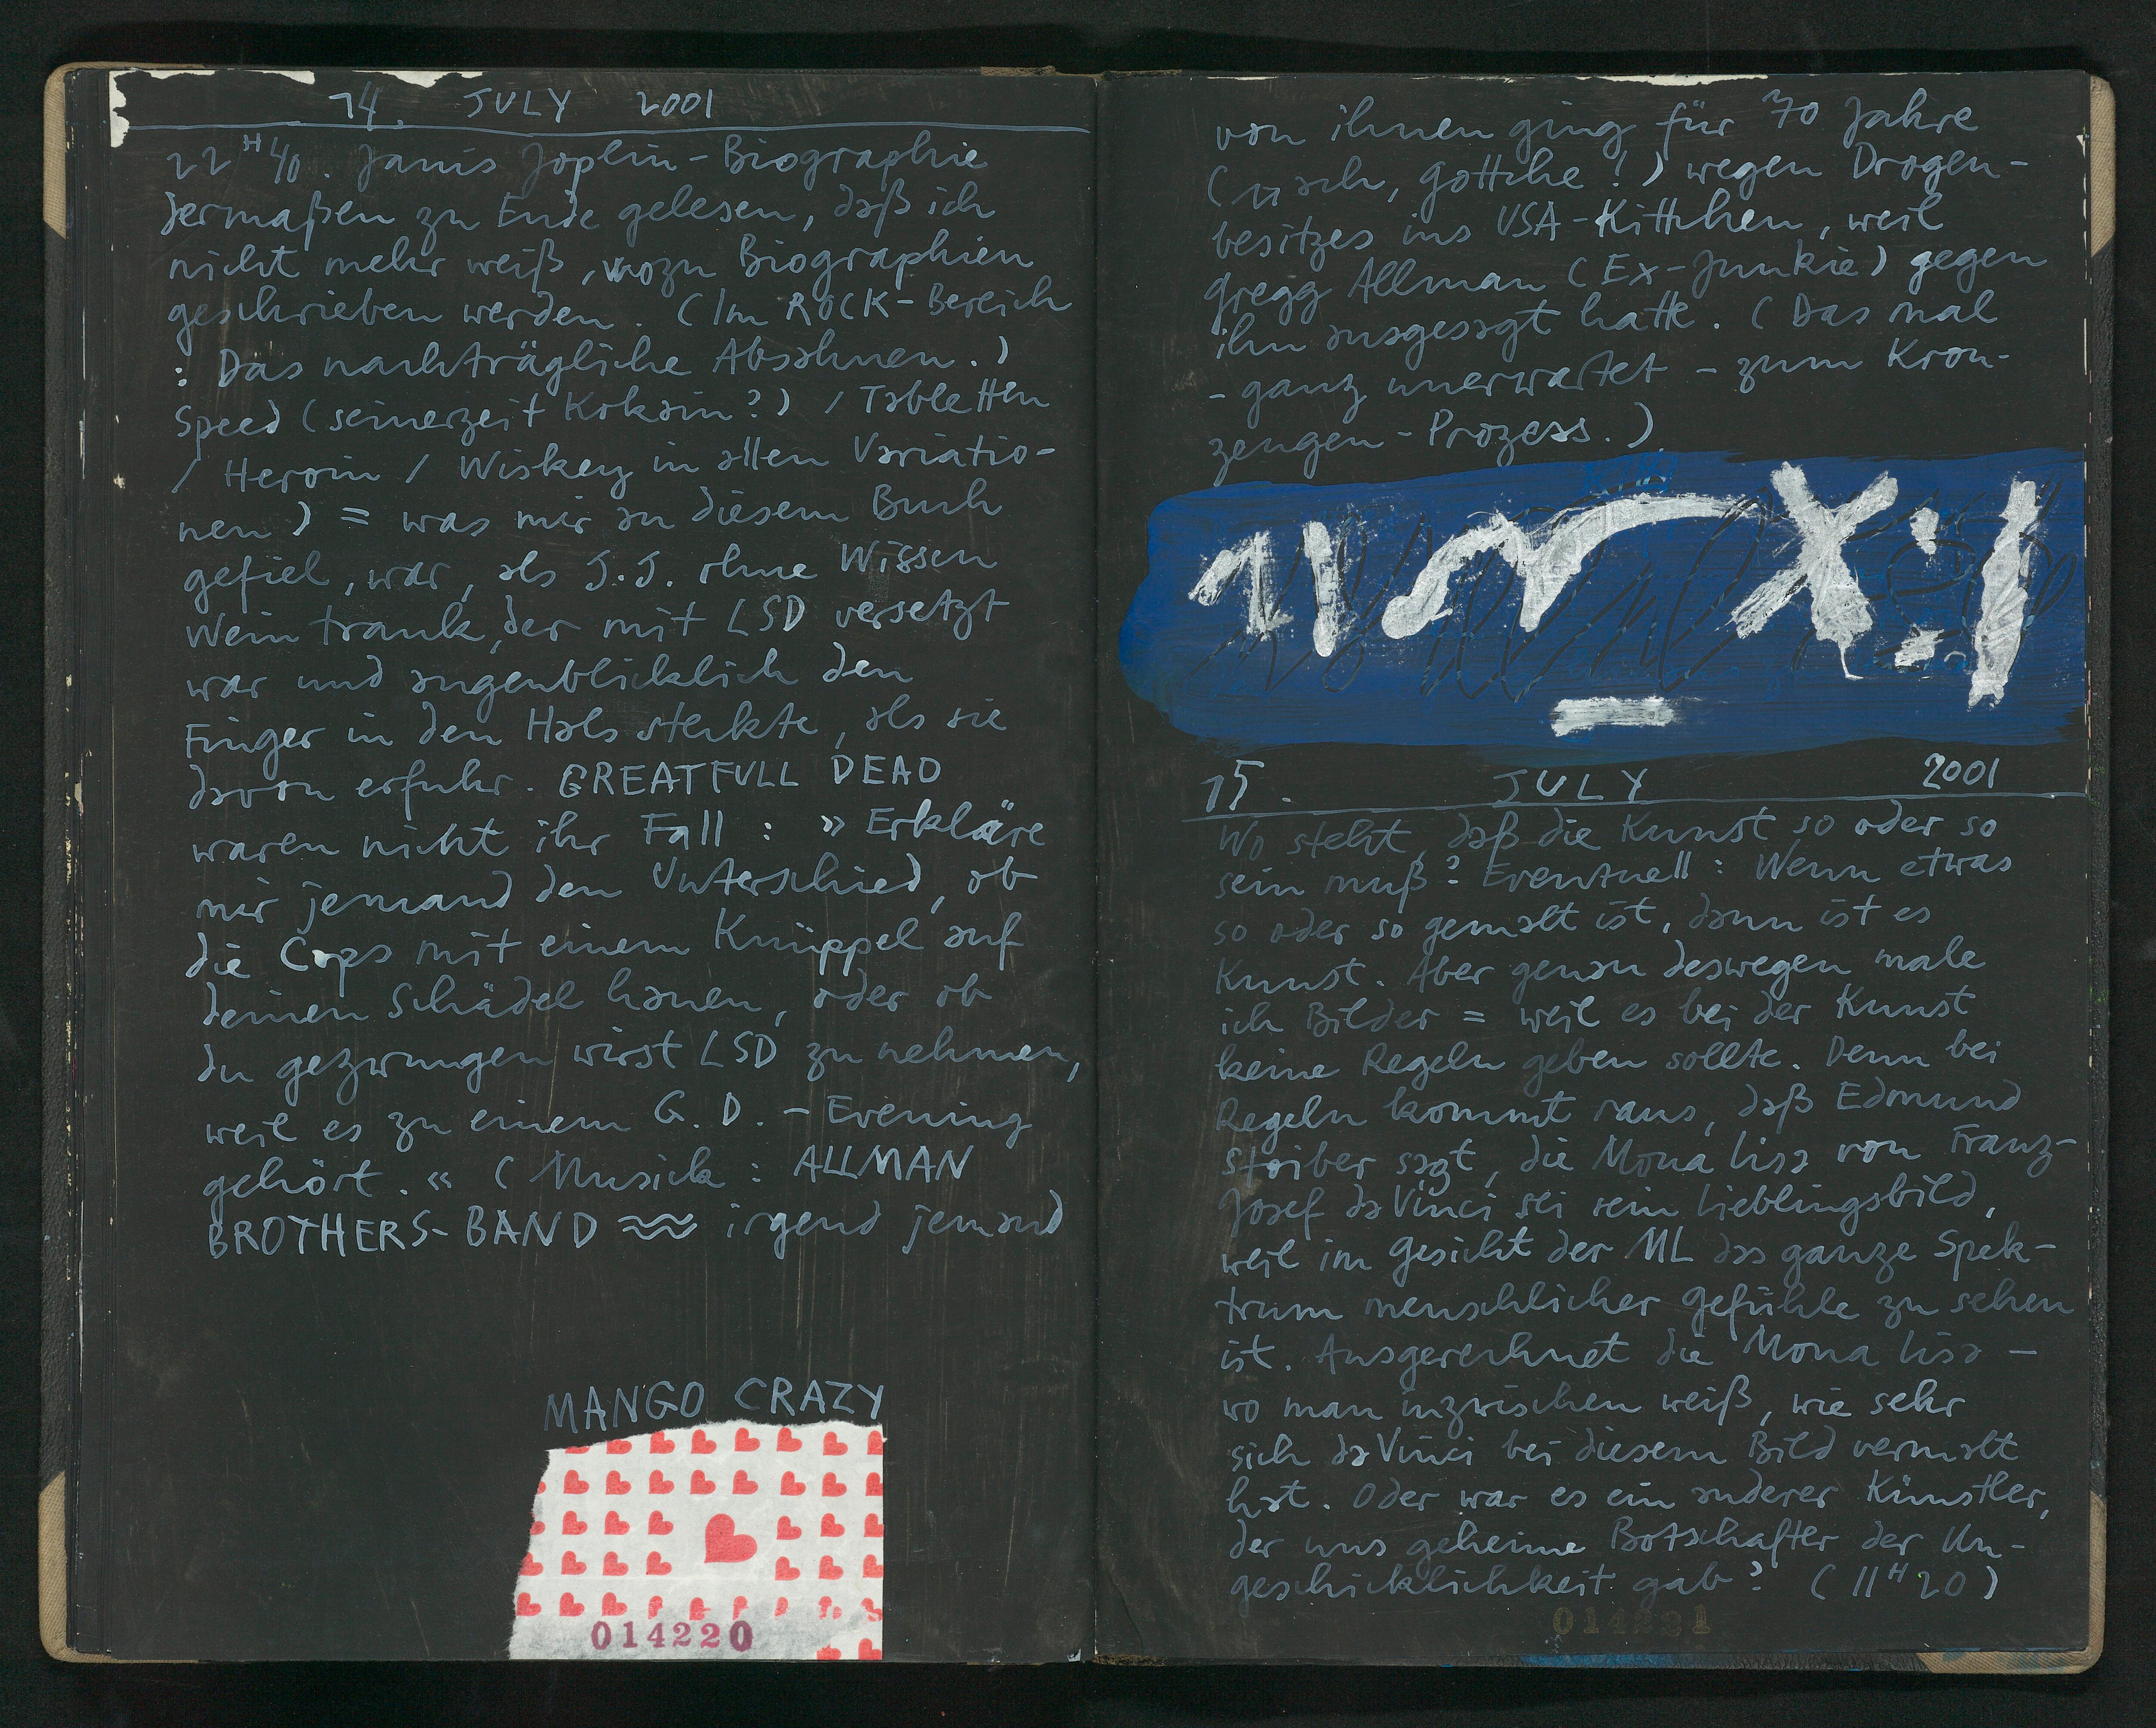 14. JULY 2001
22 H 40. Janis Joplin-Biographie
dermaßen zu Ende gelesen, daß ich
nicht mehr weiß, wozu Biographien
geschrieben werden. (Im ROCK-Bereich
: Das nachträgliche Absahnen.)
Speed (seinerzeit Kokain?) / Tabletten
/ Heroin / Wiskey in allen Variatio-
nen) = was mir an diesem Buch
gefiel, war, als J.J. ohne Wissen
Wein trank, der mit LSD versetzt
war und augenblicklich den
Finger in den Hals steckte, als sie
davon erfuhr. GREATFULL DEAD
waren nicht ihr Fall: »Erkläre
mir jemand den Unterschied, ob
die Cops mit einem Knüppel auf
deinen Schädel hauen, oder ob
du gezwungen wirst LSD zu nehmen,
weil es zu einem G.D.-Evening
gehört.« (Musick: ALLMAN
BROTHERS-BAND ≈ irgend jemand
MANGO CRAZY
014220
von ihnen ging für 70 Jahre
(ach, Gottche!) wegen Drogen-
besitzes ins USA-Kittchen, weil
Gregg Allman (Ex-Junkie) gegen
ihn ausgesagt hatte. (Das mal
- ganz unerwartet - zum Kron-
zeugen-Prozess.)
15. JULY 2001
Wo steht, daß die Kunst so oder so
sein muß? Eventuell: Wenn etwas
so oder so gemalt ist, dann ist es
Kunst. Aber genau deswegen male
ich Bilder = weil es bei der Kunst
keine Regeln geben sollte. Denn bei
Regeln kommt raus, daß Edmund
Stoiber sagt, die Mona Lisa von Franz-
Josef da Vinci sei sein Lieblingsbild,
weil im Gesicht der ML das ganze Spek-
trum menschlicher Gefühle zu sehen
ist. Ausgerechnet die Mona Lisa -
wo man inzwischen weiß, wie sehr
sich da Vinci bei diesem Bild vermalt
hat. Oder war es ein anderer Künstler,
der uns geheime Botschafter der Un-
geschicklichkeit gab? (11 H 20)
014221